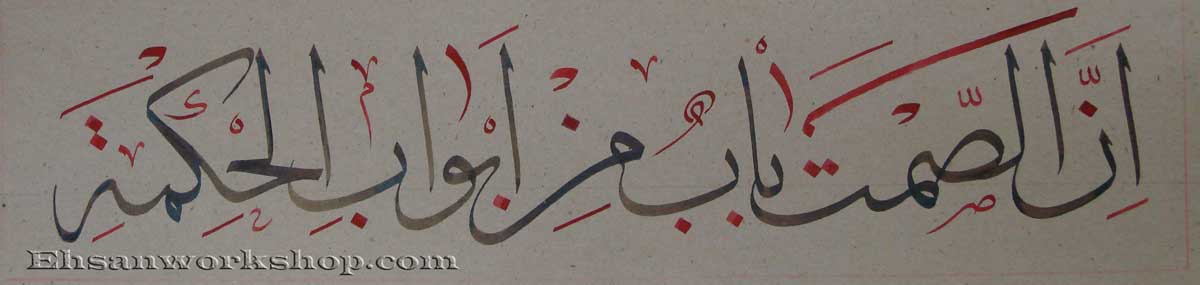 اِنَّ الصَّمتَ بابٌ مِن اَبوابِ الحِکمَةِ
Ehsanworkshop.com